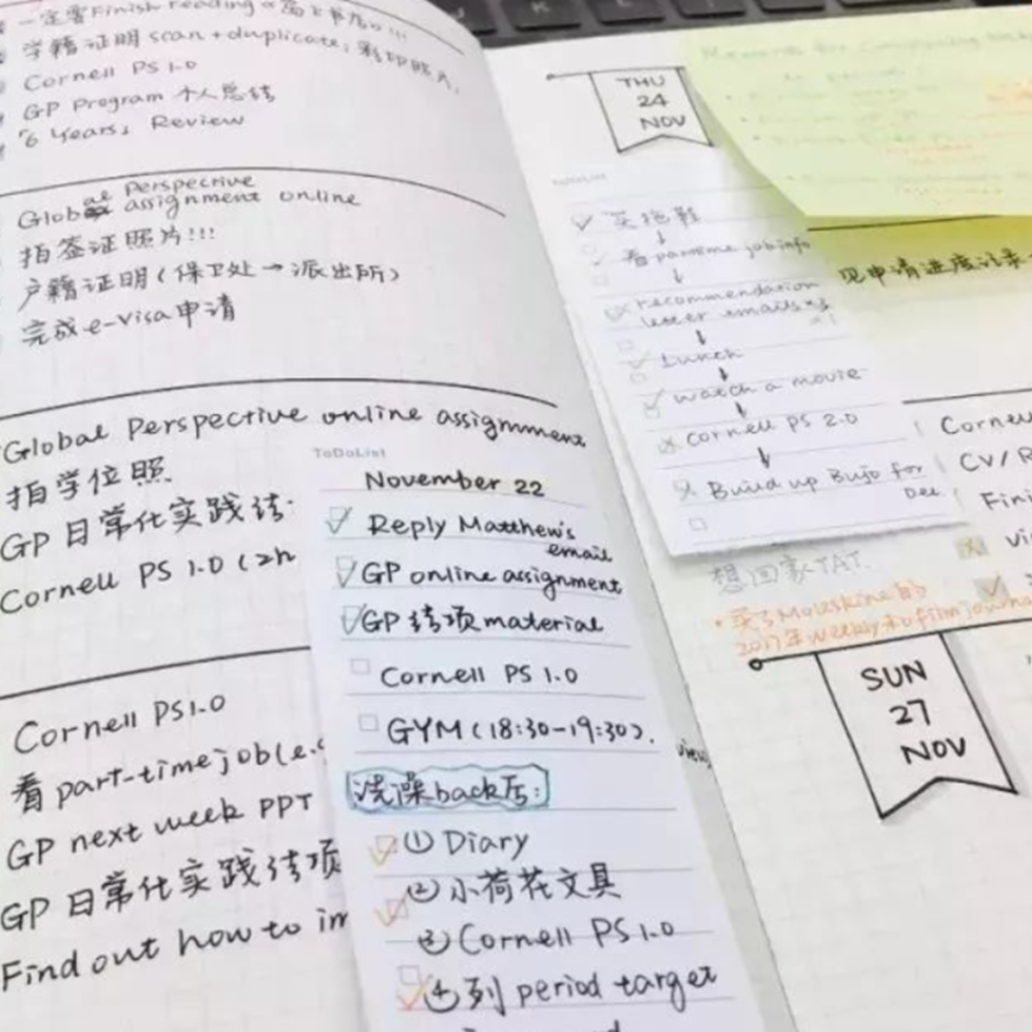 一定要Finish reading
学籍证明 scan + duplicate;
Cornell PS 1.0
GP Program 个人总结
6 Years' Review
Global Perspective
assignment online
拍签证照片!!!
户籍证明(保卫处→派出所)
完成e-Visa申请
Global Perspective online assignment
拍学位照
GP 日常化实践结
Cornell PS 1.0 (2h
Cornell PS1.0
看 part-time job(e.g
GP next week PPT
GP 日常化实践结项
Find out how to im
ToDoList
November 22
Reply Matthew's
email
GP online assignment
GP 结项 material
Cornell PS 1.0
GYM (18:30-19:30).
洗澡back后:
① Diary
② 小荷花文具
③ Cornell PS 1.0
④ 列 period target
THU
24
NOV
ToDoList
买拖鞋
看parttime job info
recommendation
letter emails x3
Lunch
watch a movie
Cornell PS 2.0
Build up Bujo for
Dec
见申请进度记录
Cornell
CV/R
Fini
Vi
想回家TAT.
·买了Moleskine的
2017年weekly和film journal
views
SUN
27
NOV